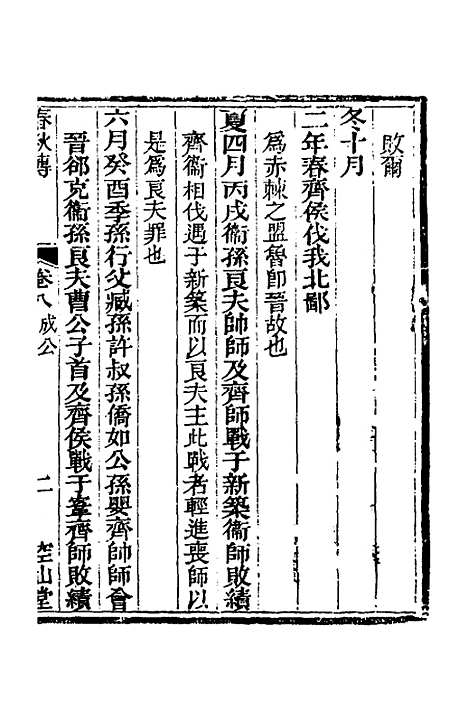 敗爾
冬十月
二年春齊侯伐我北鄙
爲赤棘之盟魯卽晉故也
夏四月丙戌衞孫良夫帥師及齊師戰于新築衞師敗績
齊衞相伐遇于新築而以良夫主此戰者輕進喪師以
是爲良夫罪也
六月癸酉季孫行父臧孫許叔孫僑如公孫嬰齊帥師會
晉郤克衞孫良夫曹公子首及齊侯戰于鞌齊師敗績
春秋傳 卷八成公 二 空山堂